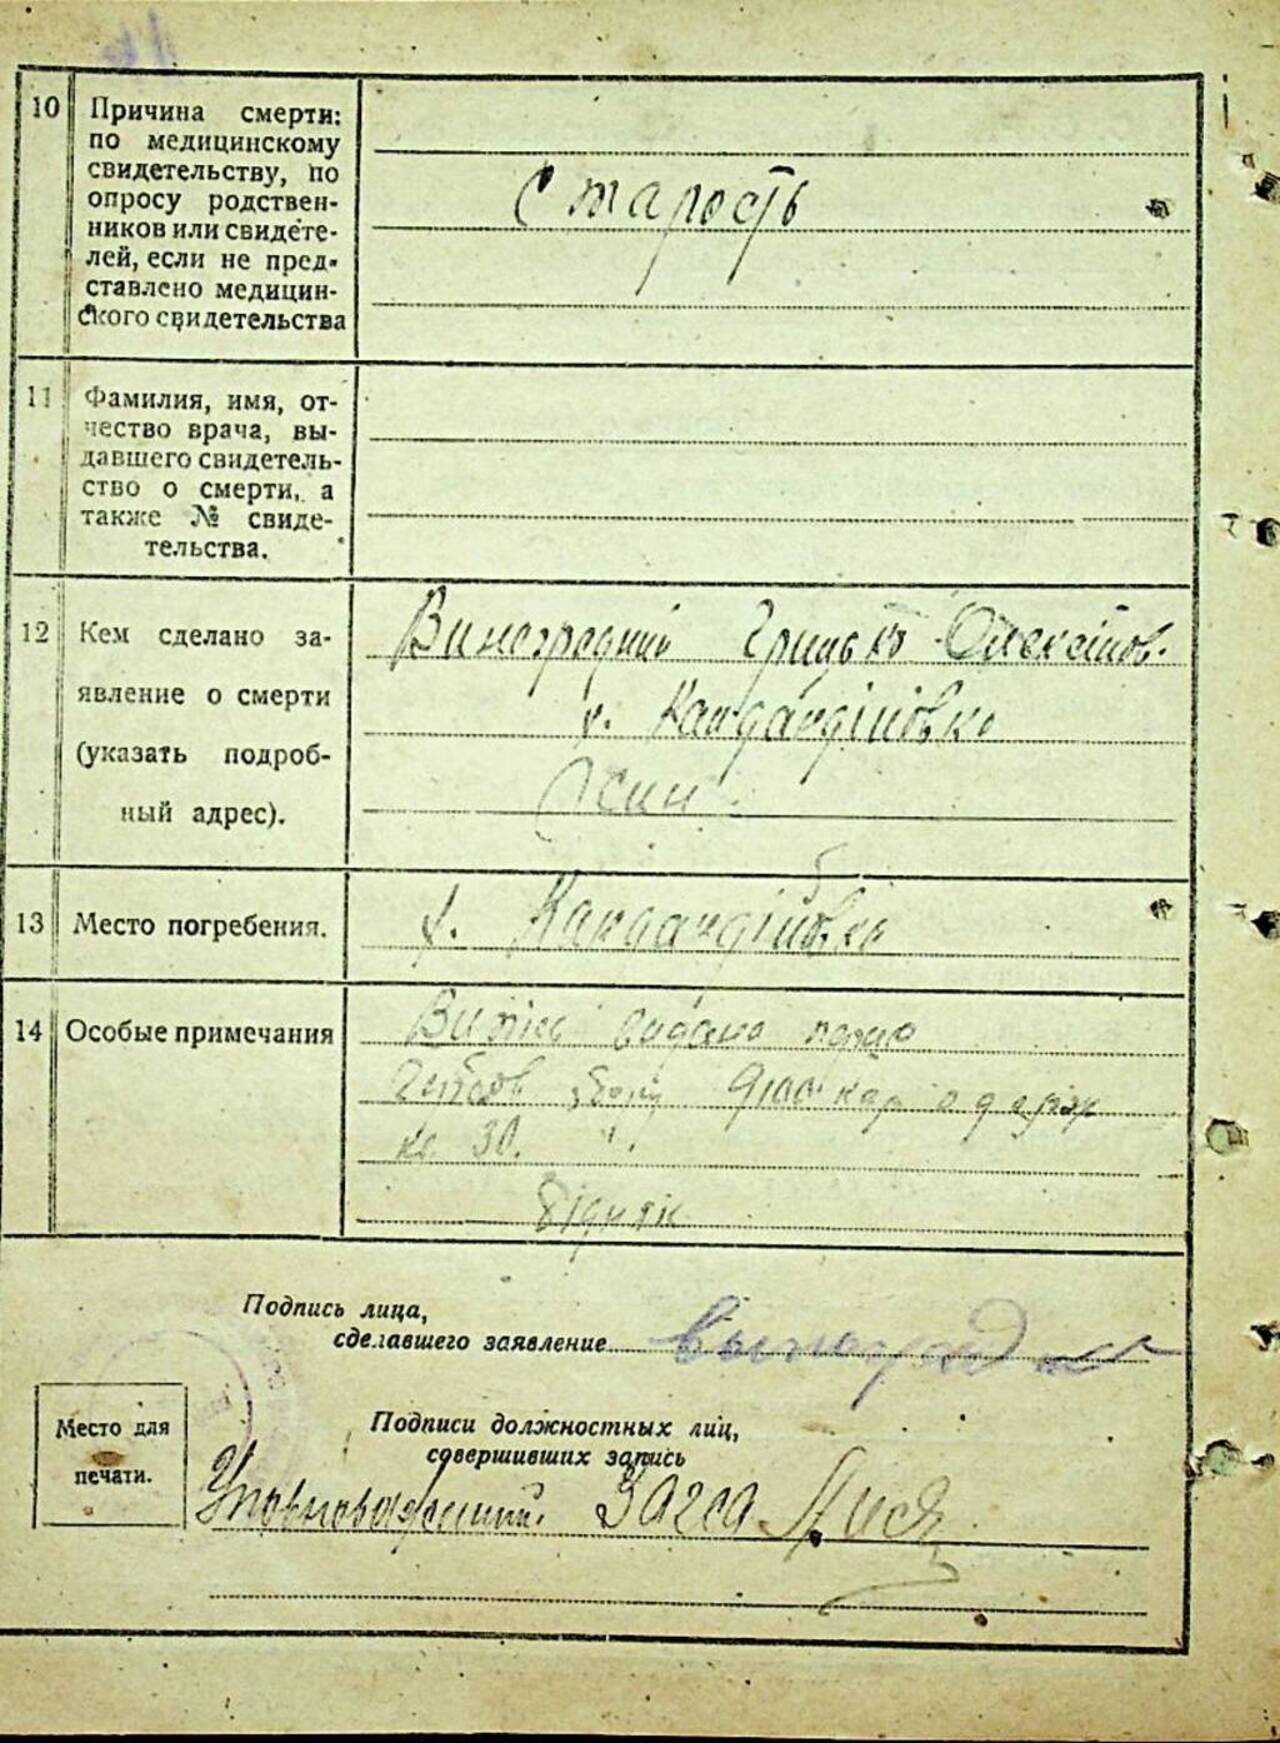 10 Причина смерти:
по медицинскому
свидетельству, по
опросу родствен-
ников или свидете-
лей, если не пред-
ставлено медицин-
ского свидетельства
Старость
11 Фамилия, имя, от-
чество врача, вы-
давшего свидетель-
ство о смерти, а
также № свиде-
тельства.
12 Кем сделано за-
явление о смерти
(указать подроб-
ный адрес).
Виноградний Грицько Олексійов.
син
13 Место погребения.
14 Особые примечания
Витяг видано
кар одерж
30.
Підпис
Подпись лица,
сделавшего заявление
Место для
печати.
Подписи должностных лиц,
совершивших запись
Уповноважений. Загса